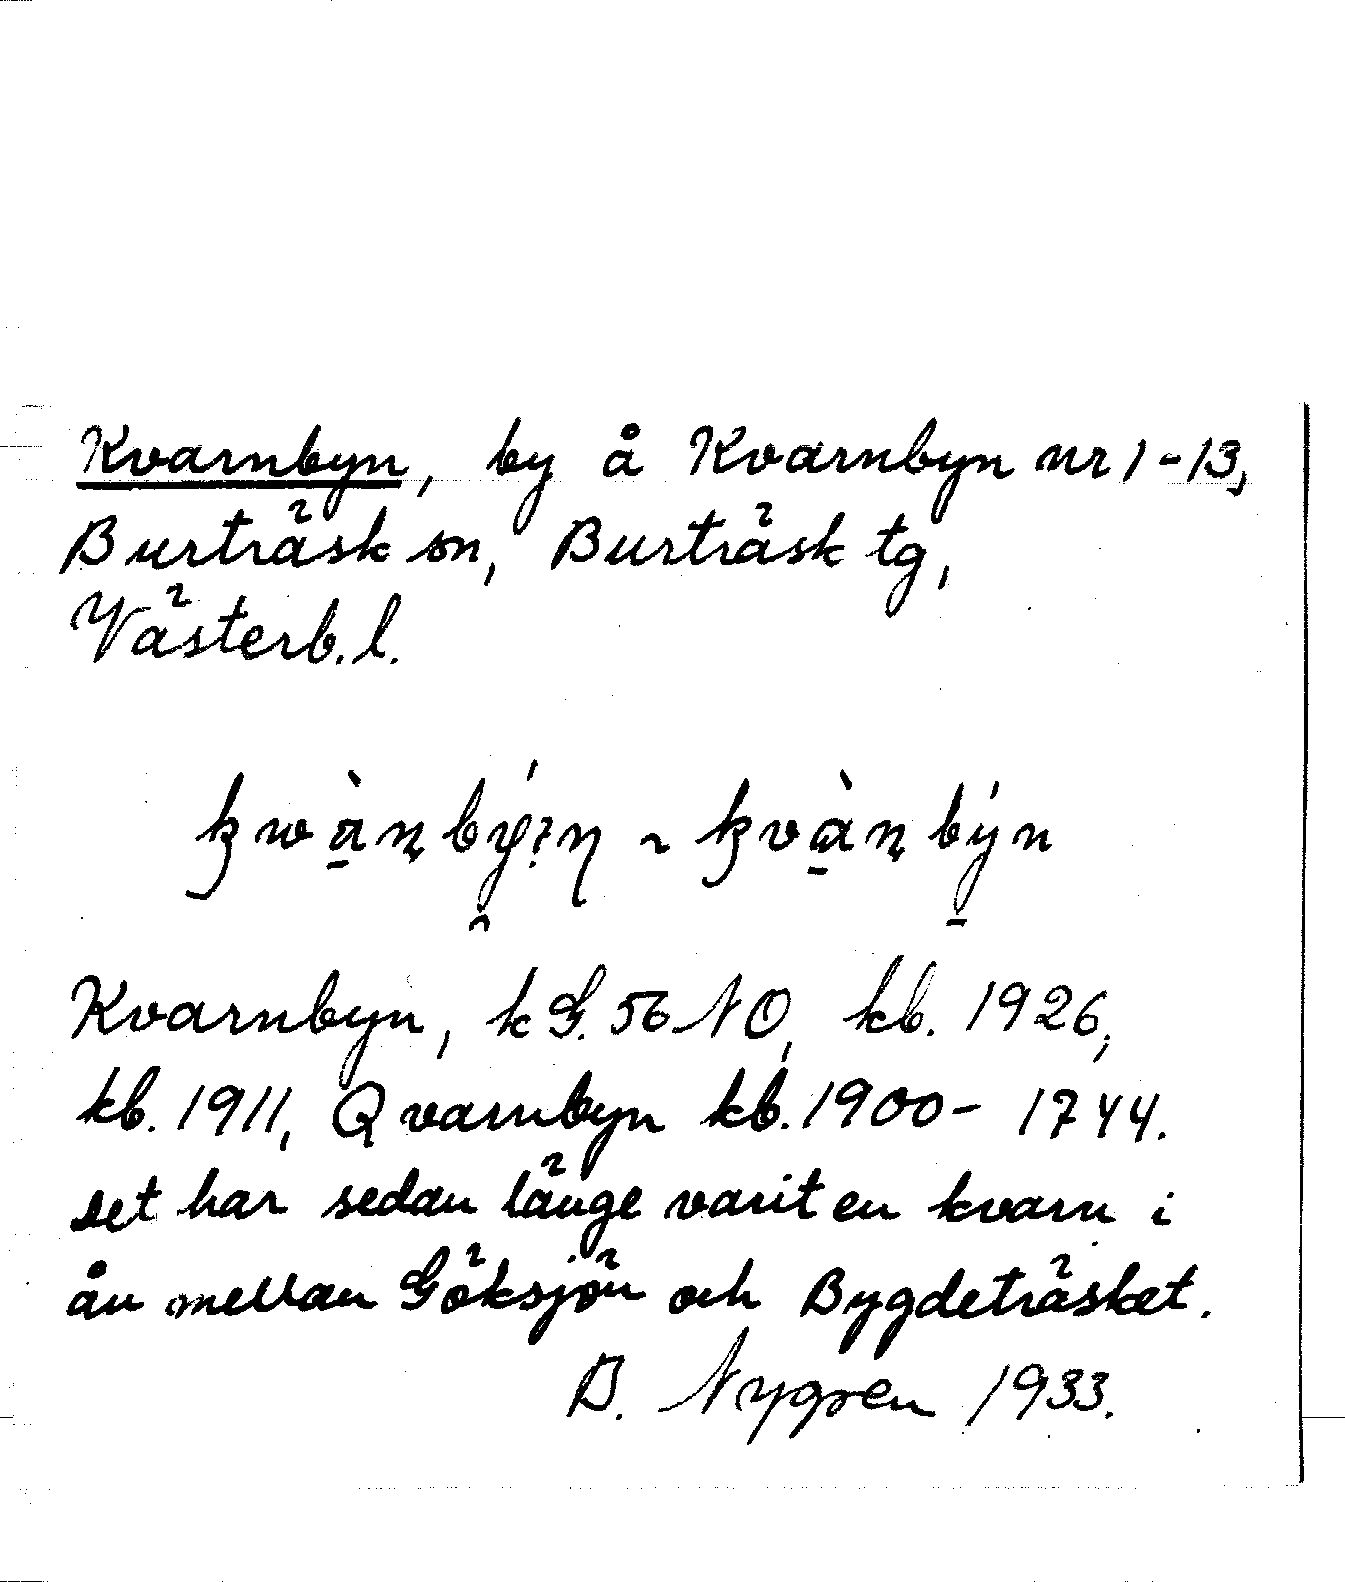 Kvarnbyn, by å Kvarnbyn nr 1-13,
Burträsk sn, Burträsk tg,
Västerb. l.
kvarnbyn, kG. 56 NO, kb. 1926,
kb. 1911, Qvarnbyn kb. 1900- 1744.
Det har sedan länge varit en kvarn i
ån mellan Göksjön och Bygdeträsket.
B. Nygren 1933.